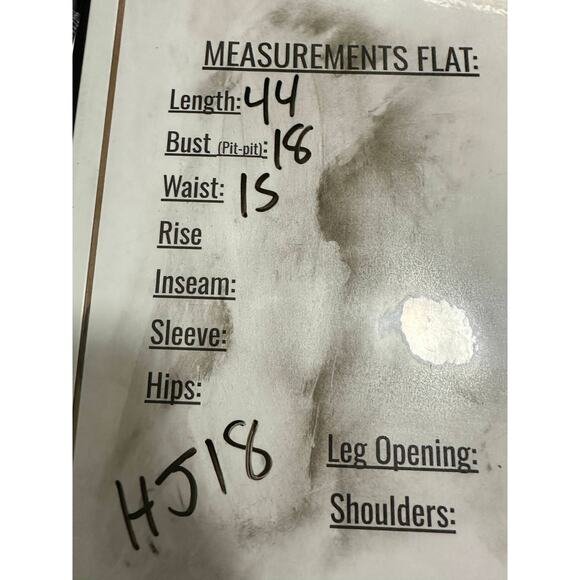 MEASUREMENTS FLAT:
Length: 44
Bust (Pit-pit): 18
Waist: 15
Rise
Inseam:
Sleeve:
Hips:
Leg Opening:
HJ18
Shoulders: